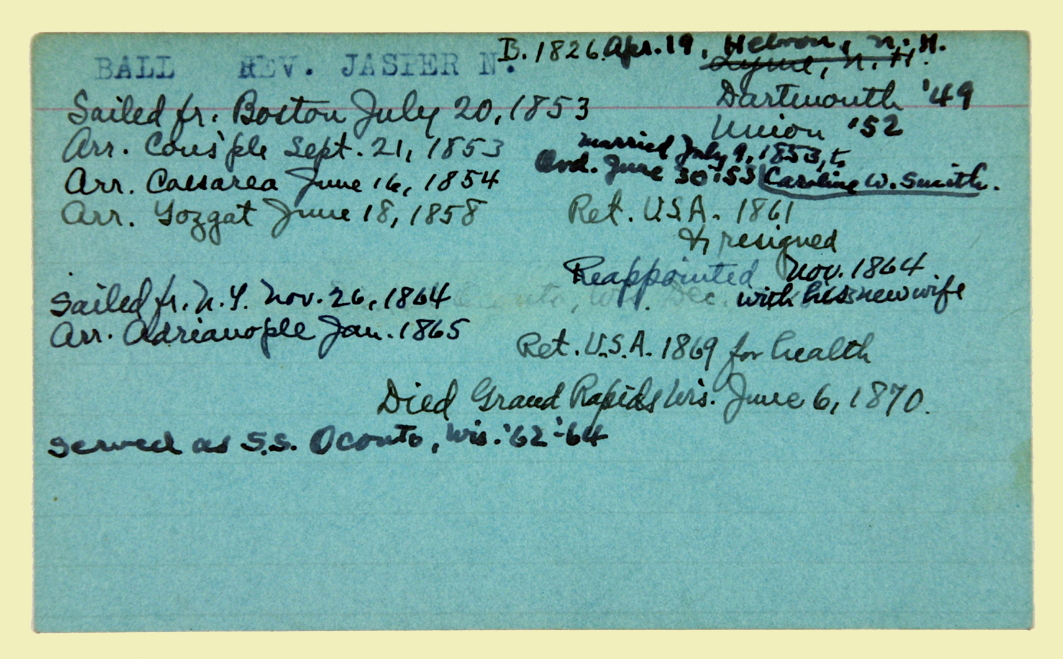 BALL REV. JASPER N. B. 1826. Apr. 19, Hebron, N.H.
Lyme, N.H.
Sailed fr. Boston July 20, 1853 Dartmouth '49
Union '52
Arr. Cons'ple Sept. 21, 1853 married July 9, 1853, to
Arr. Caesarea June 16, 1854 Ord. June 30 '53 Caroline W. Smith.
Arr. Yozgat June 18, 1858 Ret. U.S.A. 1861
& resigned
Reappointed Nov. 1864
Sailed fr. N.Y. Nov. 26, 1864 with his new wife
Arr. Adrianople Jan. 1865
Ret. U.S.A. 1869 for health
Died Grand Rapids Wis. June 6, 1870.
Served as S.S. Oconto, Wis. '62-'64